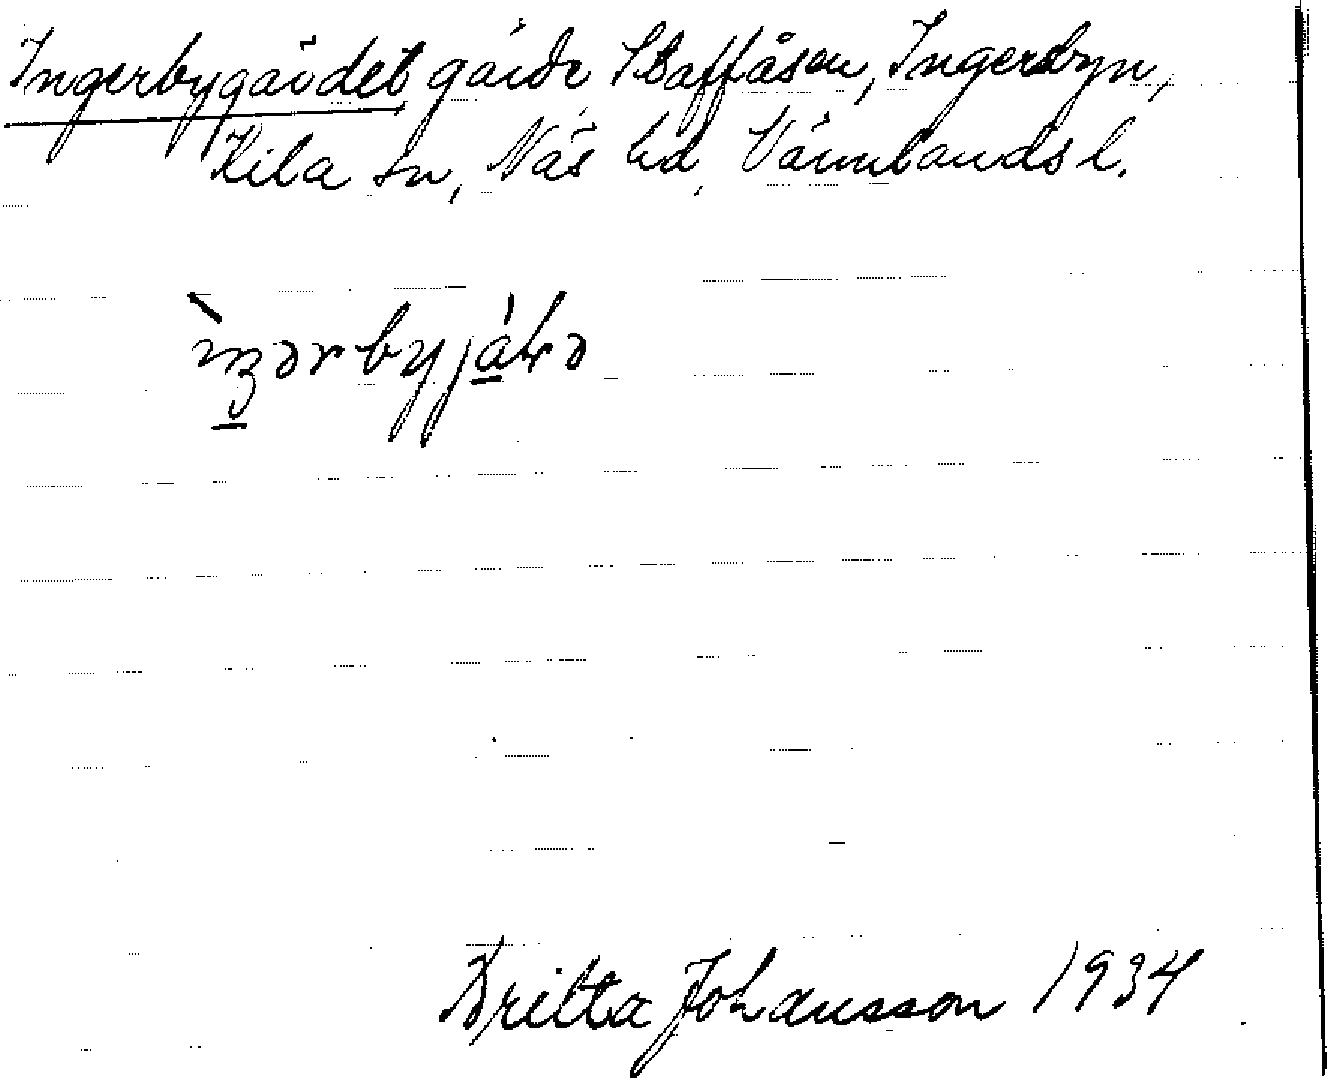 Ingerbygärdet gärde Staffåsen, Ingerbyn,
Kila sn, Näs hd, Värmlands l.
Britta Johansson 1934